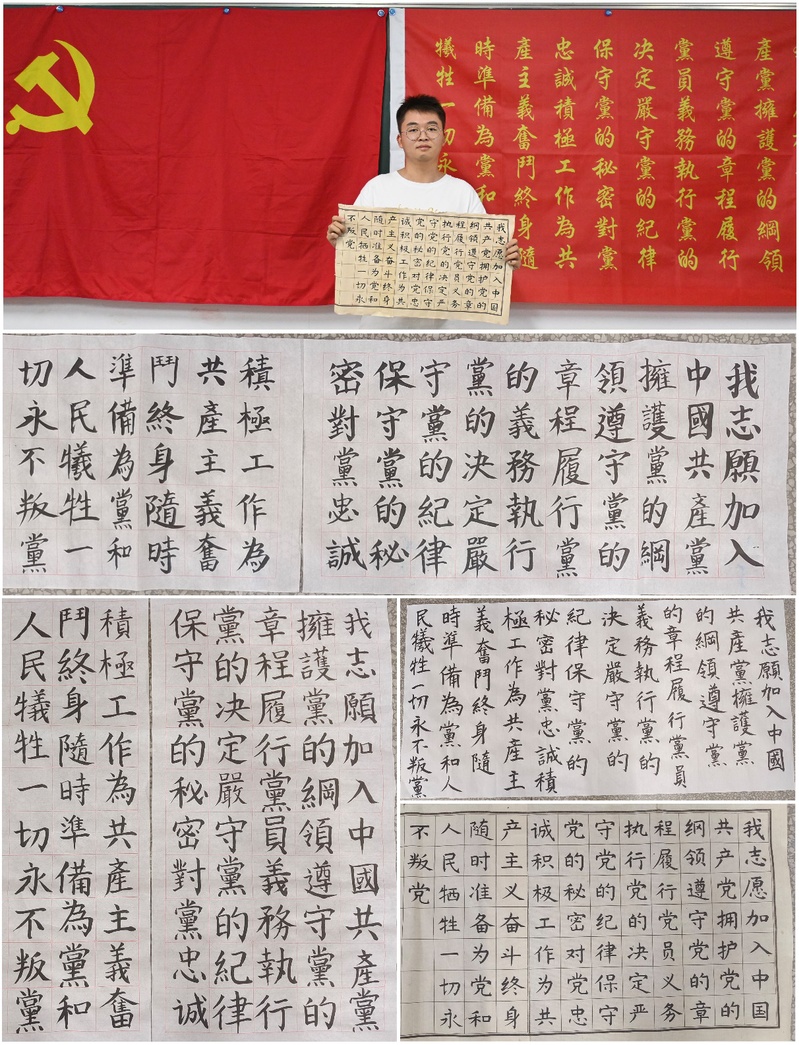 產黨擁護黨的綱領
遵守黨的章程履行
黨員義務執行黨的
决定嚴守黨的紀律
保守黨的秘密對黨
忠誠積極工作為共
產主義奮鬥終身隨
時準備為黨和
犧牲一切永
我志愿加入中国
共产党拥护党的
纲领遵守党的章
程履行党员义务
执行党的决定严
守党的纪律保守
党的秘密对党忠
诚积极工作为共
产主义奋斗终身
随时准备为党和
人民牺牲一切永
不叛党
我志願加入
中國共產黨
擁護黨的綱
領遵守黨的
章程履行黨
的義務執行
黨的決定嚴
守黨的紀律
保守黨的秘
密對黨忠誠
積極工作為
共產主義奮
鬥終身隨時
準備為黨和
人民犧牲一
切永不叛黨
我志願加入中國共產黨
擁護黨的綱領遵守黨的
章程履行黨員義務執行
黨的决定嚴守黨的紀律
保守黨的秘密對黨忠誠
積極工作為共產主義奮
鬥終身隨時準備為黨和
人民犧牲一切永不叛黨
我志願加入中國
共產黨擁護黨
的綱領遵守黨
的章程履行黨員
義務執行黨的
决定嚴守黨的
紀律保守黨的
秘密對黨忠誠積
極工作為共產主
義奮鬥終身隨
時準備為黨和人
民犧牲一切永不叛黨
我志愿加入中国
共产党拥护党的
纲领遵守党的章
程履行党员义务
执行党的决定严
守党的纪律保守
党的秘密对党忠
诚积极工作为共
产主义奋斗终身
随时准备为党和
人民牺牲一切永
不叛党